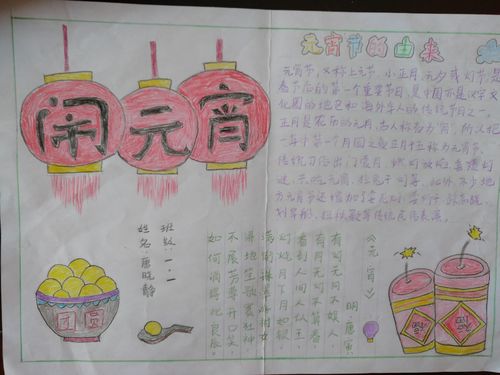 闹元宵
元宵节的由来
元宵节,又称上元节、小正月、元夕或灯节,是
春节后的第一个重要节日,是中国亦是汉字文
化圈的地区和海外华人的传统节日之一。
正月是农历的元月,古人称夜为"宵",所以把
一年中第一个月圆之夜正月十五称为元宵节。
传统习俗出门赏月、燃灯放焰、喜猜灯
谜、共吃元宵、拉兔子灯等。此外,不少地
方元宵节还增加了耍龙灯、耍狮子、踩高跷、
划旱船、扭秧歌等传统民俗表演。
《元宵》
明·唐寅
有灯无月不娱人,
有月无灯不算春。
春到人间人似玉,
灯烧月下月如银。
满街珠翠游村女,
沸地笙歌赛社神。
不展芳尊开口笑,
如何消得此良辰。
班级:一.1
姓名:唐晓静
团圆
福
福